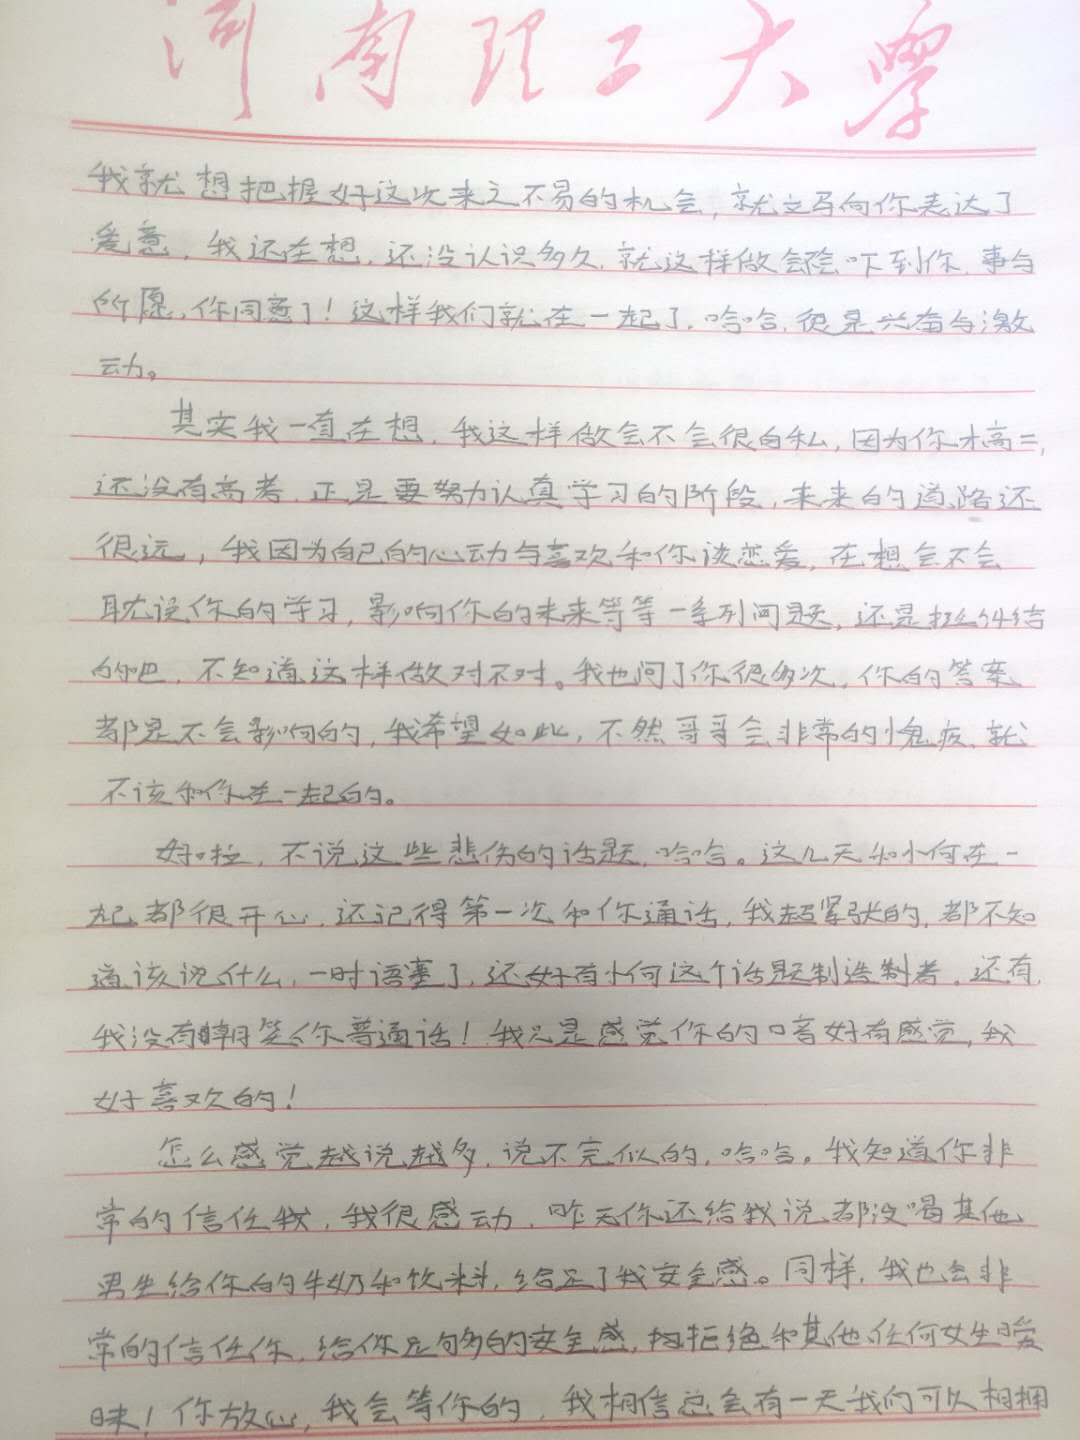 河南理工大学
我就想把握好这次来之不易的机会，就立马向你表达了
爱意，我还在想，还没认识多久，就这样做会会吓到你，事与
所愿，你同意了！这样我们就在一起了，哈哈，很是兴奋与激
动。
其实我一直在想，我这样做会不会很自私，因为你才高二，
还没有高考，正是要努力认真学习的阶段，未来的道路还
很远，我因为自己的心动与喜欢和你谈恋爱，在想会不会
耽误你的学习，影响你的未来等等一系列问题，还是挺纠结
的吧，不知道这样做对不对。我也问了你很多次，你的答案
都是不会影响的，我希望如此，不然哥哥会非常的愧疚，就
不该和你在一起的。
好啦，不说这些悲伤的话题，哈哈。这几天和小何在一
起都很开心，还记得第一次和你通话，我超紧张的，都不知
道该说什么，一时语塞了，还好有小何这个话题制造制者。还有，
我没有嘲笑你普通话！我只是感觉你的口音好有感觉，我
好喜欢的！
怎么感觉越说越多，说不完似的，哈哈。我知道你非
常的信任我，我很感动，昨天你还给我说都没喝其他
男生给你的牛奶和饮料，给足了我安全感。同样，我也会非
常的信任你，给你足够多的安全感，拒绝和其他任何女生暧
昧！你放心，我会等你的，我相信总会有一天我们可以相拥